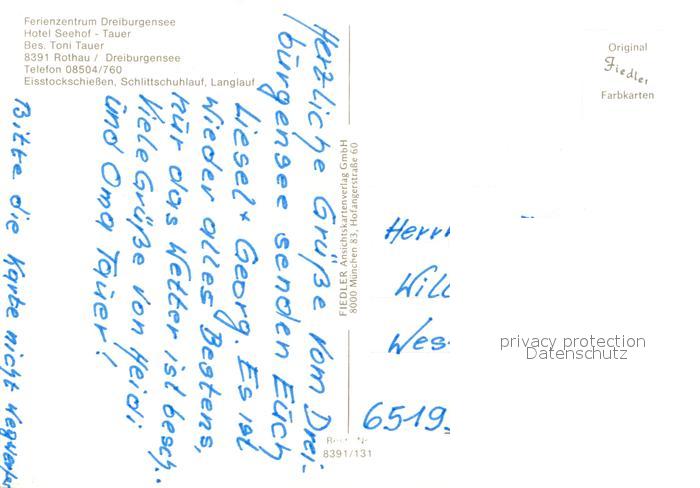 Ferienzentrum Dreiburgensee
Hotel Seehof - Tauer
Bes. Toni Tauer
8391 Rothau / Dreiburgensee
Telefon 08504/760
Eisstockschießen, Schlittschuhlauf, Langlauf
Herzliche Grüße vom Drei-
bürgensee senden Eüch
Liesel + Georg. Es ist
wieder alles Bestens,
nür das Wetter ist besch..
Viele Grüße von Heidi
ünd Oma Taüer!
Bitte die Karte nicht wegwerfen
FIEDLER Ansichtskartenverlag GmbH
8000 München 83, Hofangerstraße 60
Original
Fiedler
Farbkarten
Herrn
Will
Wes
6519
Best. Nr.
8391/131
privacy protection
Datenschutz